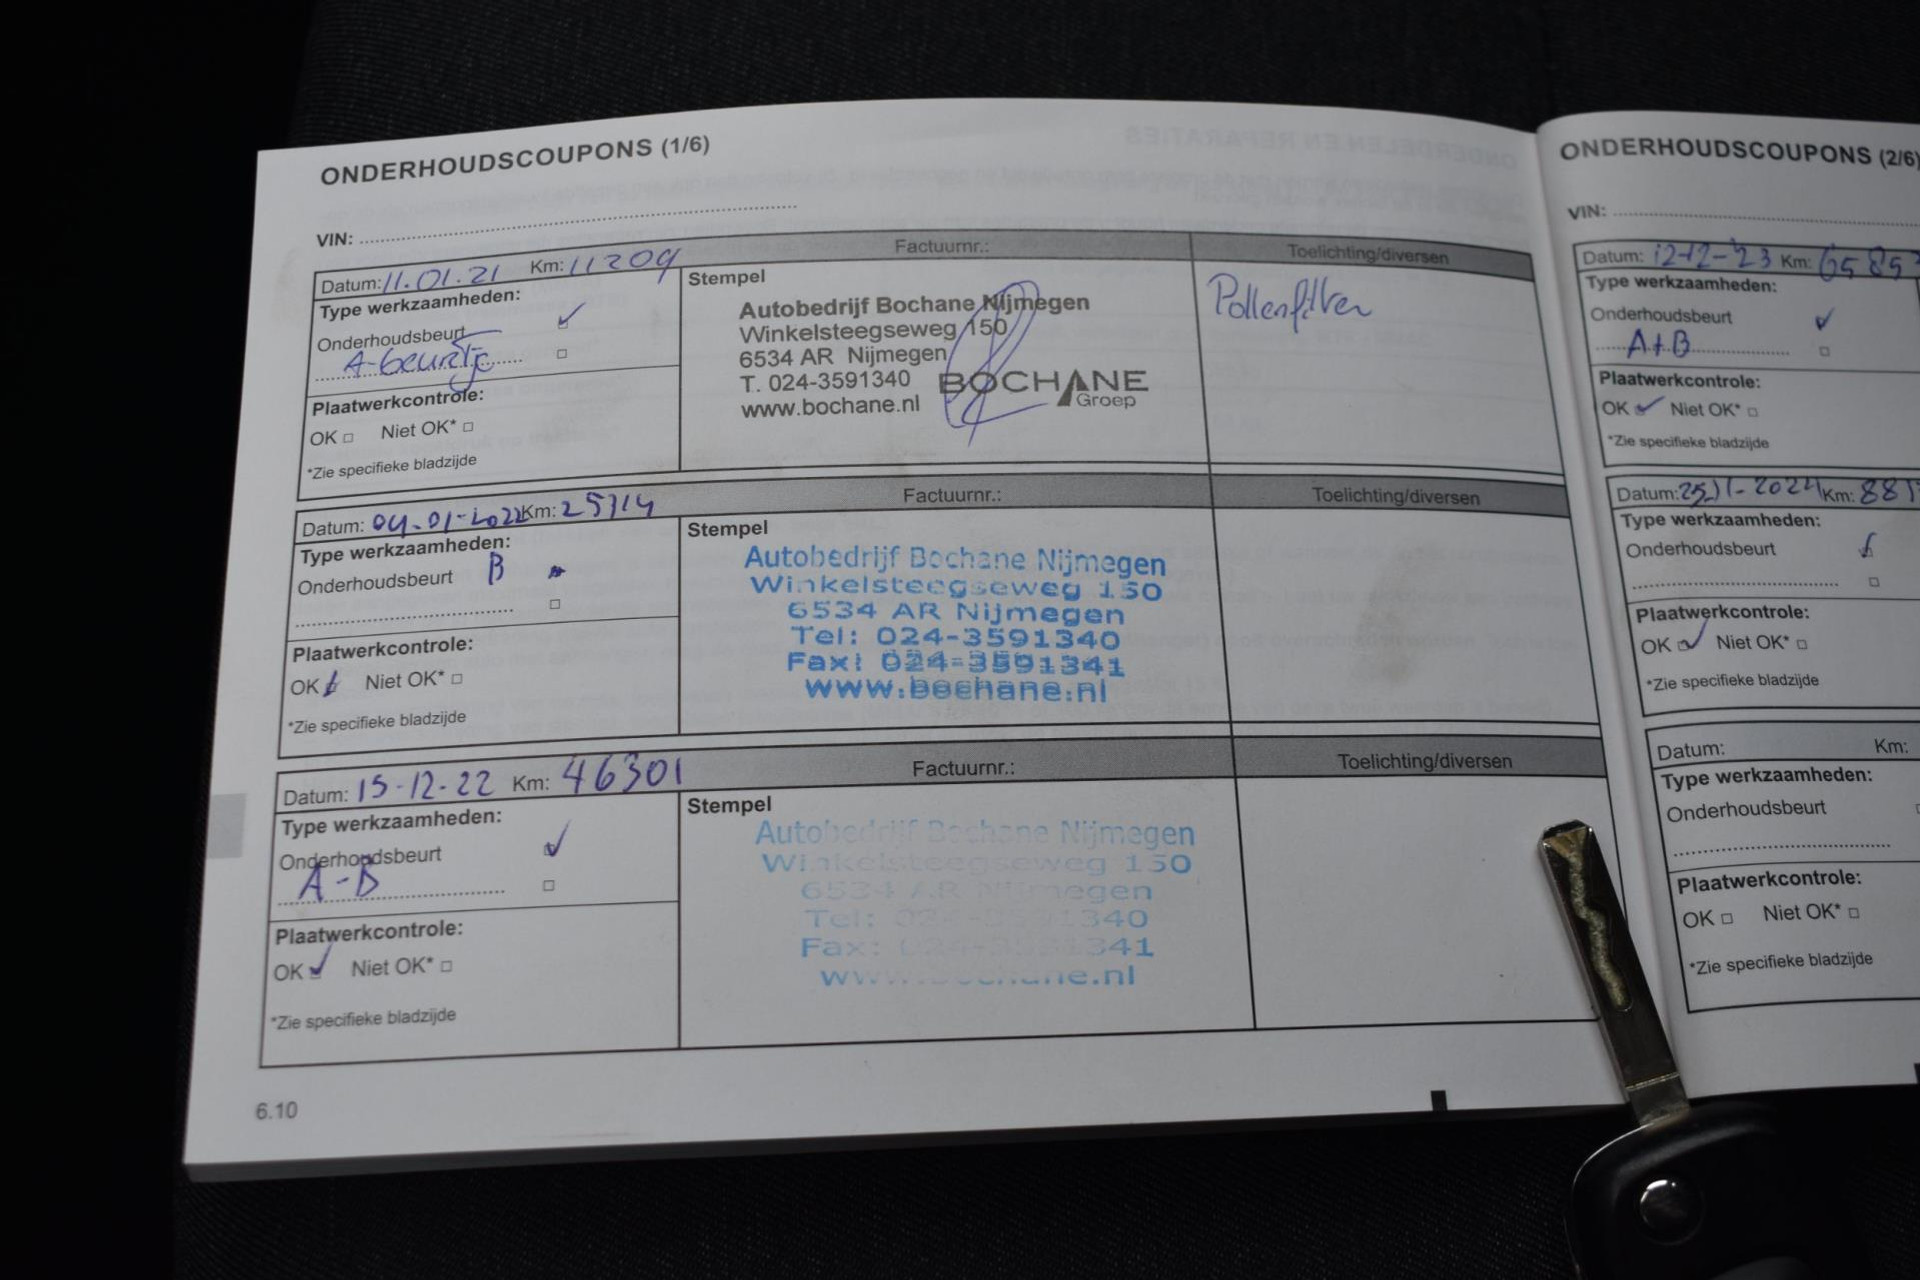 ONDERHOUDSCOUPONS (1/6)
VIN:
Datum: 11.01.21 Km: 11209 Factuurnr.: Toelichting/diversen
Type werkzaamheden:
Onderhoudsbeurt
A-beurtje
Plaatwerkcontrole:
OK Niet OK*
*Zie specifieke bladzijde
Stempel
Autobedrijf Bochane Nijmegen
Winkelsteegseweg 150
6534 AR Nijmegen
T. 024-3591340
www.bochane.nl
BOCHANE
Groep
Pollenfilter
Datum: 04-01-2022 Km: 25714 Factuurnr.: Toelichting/diversen
Type werkzaamheden:
Onderhoudsbeurt B
Plaatwerkcontrole:
OK Niet OK*
*Zie specifieke bladzijde
Stempel
Autobedrijf Bochane Nijmegen
Winkelsteegseweg 150
6534 AR Nijmegen
Tel: 024-3591340
Fax: 024-3591341
www.bochane.nl
Datum: 15-12-22 Km: 46301 Factuurnr.: Toelichting/diversen
Type werkzaamheden:
Onderhoudsbeurt
A-B
Plaatwerkcontrole:
OK Niet OK*
*Zie specifieke bladzijde
Stempel
Autobedrijf Bochane Nijmegen
Winkelsteegseweg 150
6534 AR Nijmegen
Tel: 024-3591340
Fax: 024-3591341
www.bochane.nl
6.10
ONDERHOUDSCOUPONS (2/6)
VIN:
Datum: 12-12-'23 Km:
Type werkzaamheden:
Onderhoudsbeurt
A+B
Plaatwerkcontrole:
OK Niet OK*
*Zie specifieke bladzijde
Datum: 25-11-2024 Km:
Type werkzaamheden:
Onderhoudsbeurt
Plaatwerkcontrole:
OK Niet OK*
*Zie specifieke bladzijde
Datum: Km:
Type werkzaamheden:
Onderhoudsbeurt
Plaatwerkcontrole:
OK Niet OK*
*Zie specifieke bladzijde